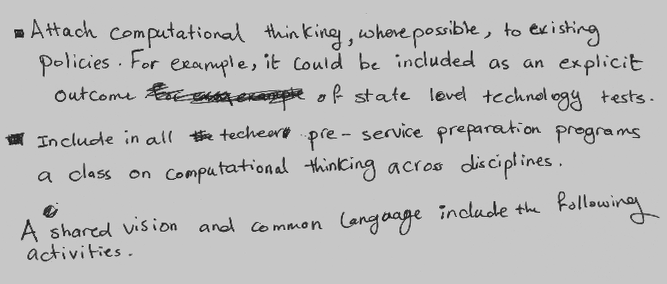 ▪ Attach computational thinking, where possible, to existing
policies. For example, it could be included as an explicit
outcome of state level technology tests.
▪ Include in all techeers pre-service preparation programs
a class on computational thinking across disciplines.
A shared vision and common language include the following
activities.